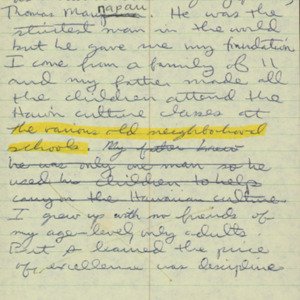 napau
Thomas Mau . He was the
strictest man in the world
but he gave me my foundation
I come from a family of 11
and my father made all
the children attend the
Hawn culture classes at
the various old neighborhood
schools. My father knew
he was only one man so he
used his children to help
carry on the Hawaiian culture
I grew up with no friends of
my age-level only adults
But I learned the price
of excellence was discipline